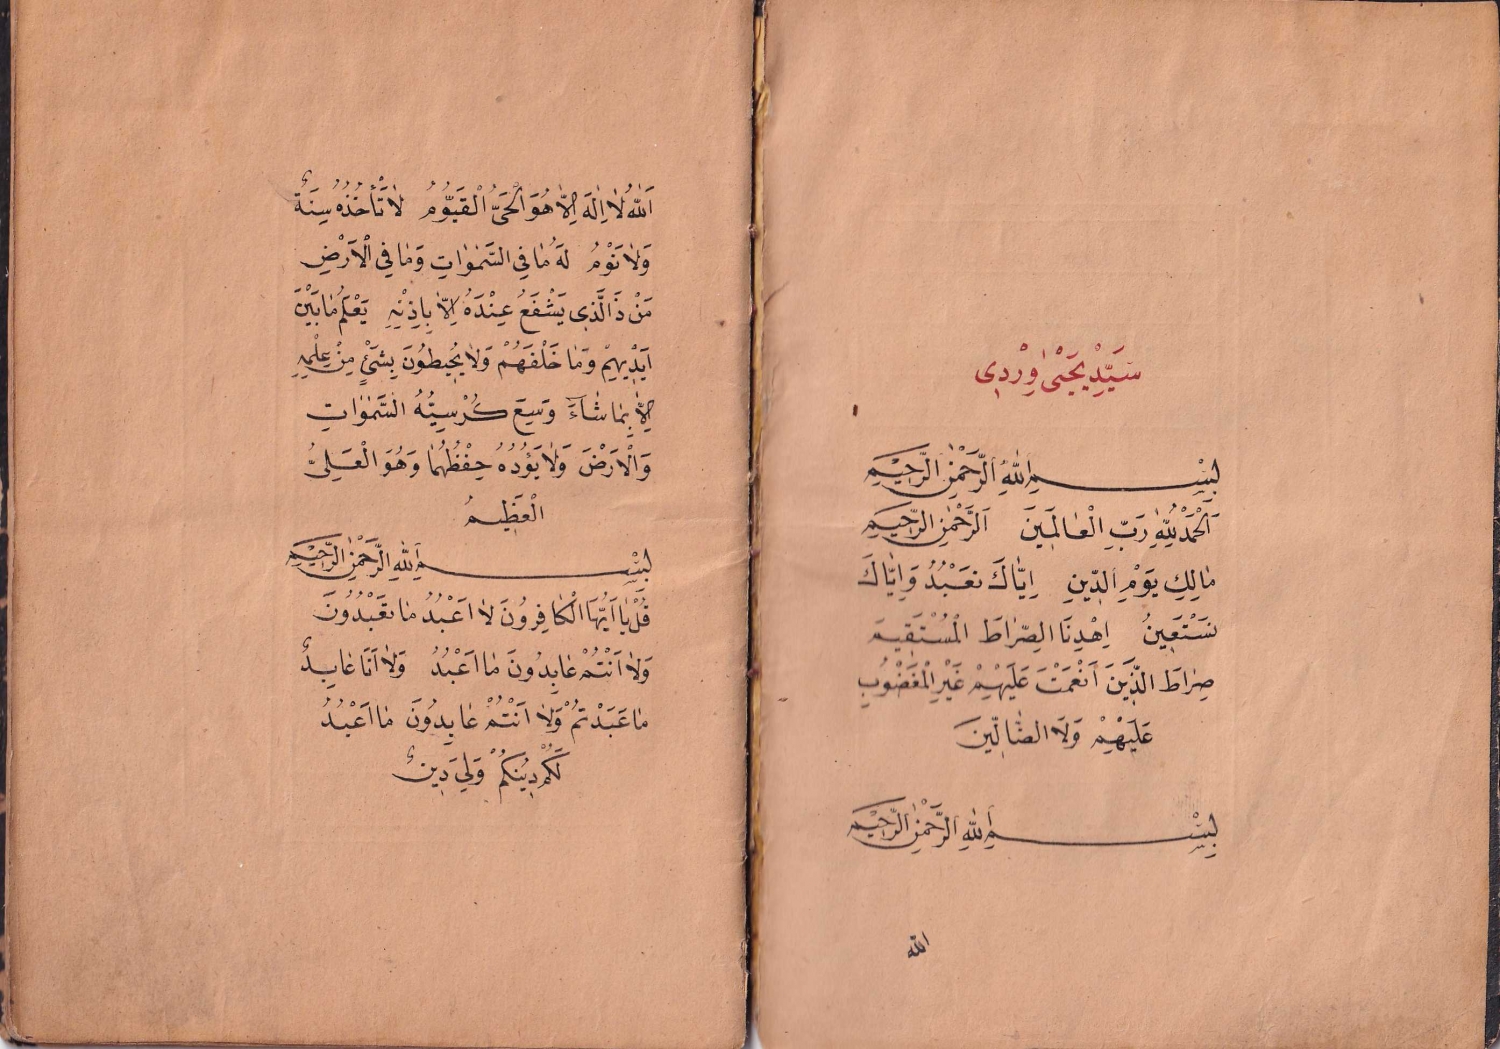 سَيِّدْ يَحْيٰى وِرْدِى
بِسْمِ اللّٰهِ الرَّحْمٰنِ الرَّحِيْمِ
اَلْحَمْدُ لِلّٰهِ رَبِّ الْعٰالَمِيَن اَلرَّحْمٰنِ الرَّحِيْمِ
مٰالِكِ يَوْمِ الدِّينِ اِيّٰاكَ نَعَبْدُ وَاِيّٰاكَ
نَسْتَعِينُ اِهْدِنَا الصِّرٰاطَ الْمُسْتَقِيمَ
صِرٰاطَ الَّذِينَ اَنْعَمْتَ عَلَيْهِمْ غَيْرِ الْمَغْضُوبِ
عَلَيْهِمْ وَلَا الضّٰالِّينَ
بِسْمِ اللّٰهِ الرَّحْمٰنِ الرَّحِيْمِ
اللّٰه
اَللّٰهُ لٰا اِلٰهَ اِلّٰا هُوَ الْحَيُّ الْقَيُّومُ لٰا تَأْخُذُهُ سِنَةٌ
وَلٰا نَوْمُ لَهُ مٰا فِى السَّمٰوٰاتِ وَمٰا فِى الْاَرْضِ
مَنْ ذَالَّذِى يَشْفَعُ عِنْدَهُ اِلّٰا بِاِذْنِهِ يَعْلَمُ مٰا بَيْنَ
اَيْدِيهِمْ وَمٰا خَلْفَهُمْ وَلٰا يُحِيطُونَ بِشَئٍْ مِنْ عِلْمِهِ
اِلّٰا بِمٰا شٰاءَ وَسِعَ كُرْسِيُّهُ السَّمٰوٰاتِ
وَالْاَرْضَ وَلٰا يَؤُدُهُ حِفْظُهُمٰا وَهُوَ الْعَلِىُّ
الْعَظِيمُ
بِسْمِ اللّٰهِ الرَّحْمٰنِ الرَّحِيْمِ
قُلْ يٰا اَيُّهَا الْكٰافِرُونَ لٰا اَعْبُدُ مٰا تَعْبُدُونَ
وَلٰا اَنْتُمْ عٰابِدُونَ مٰا اَعْبُدُ وَلٰا اَنَا عٰابِدٌ
مٰا عَبَدْتُمْ وَلٰا اَنْتُمْ عٰابِدُونَ مٰا اَعْبُدُ
لَكُمْ دِينُكُمْ وَلِيَ دِينٌ